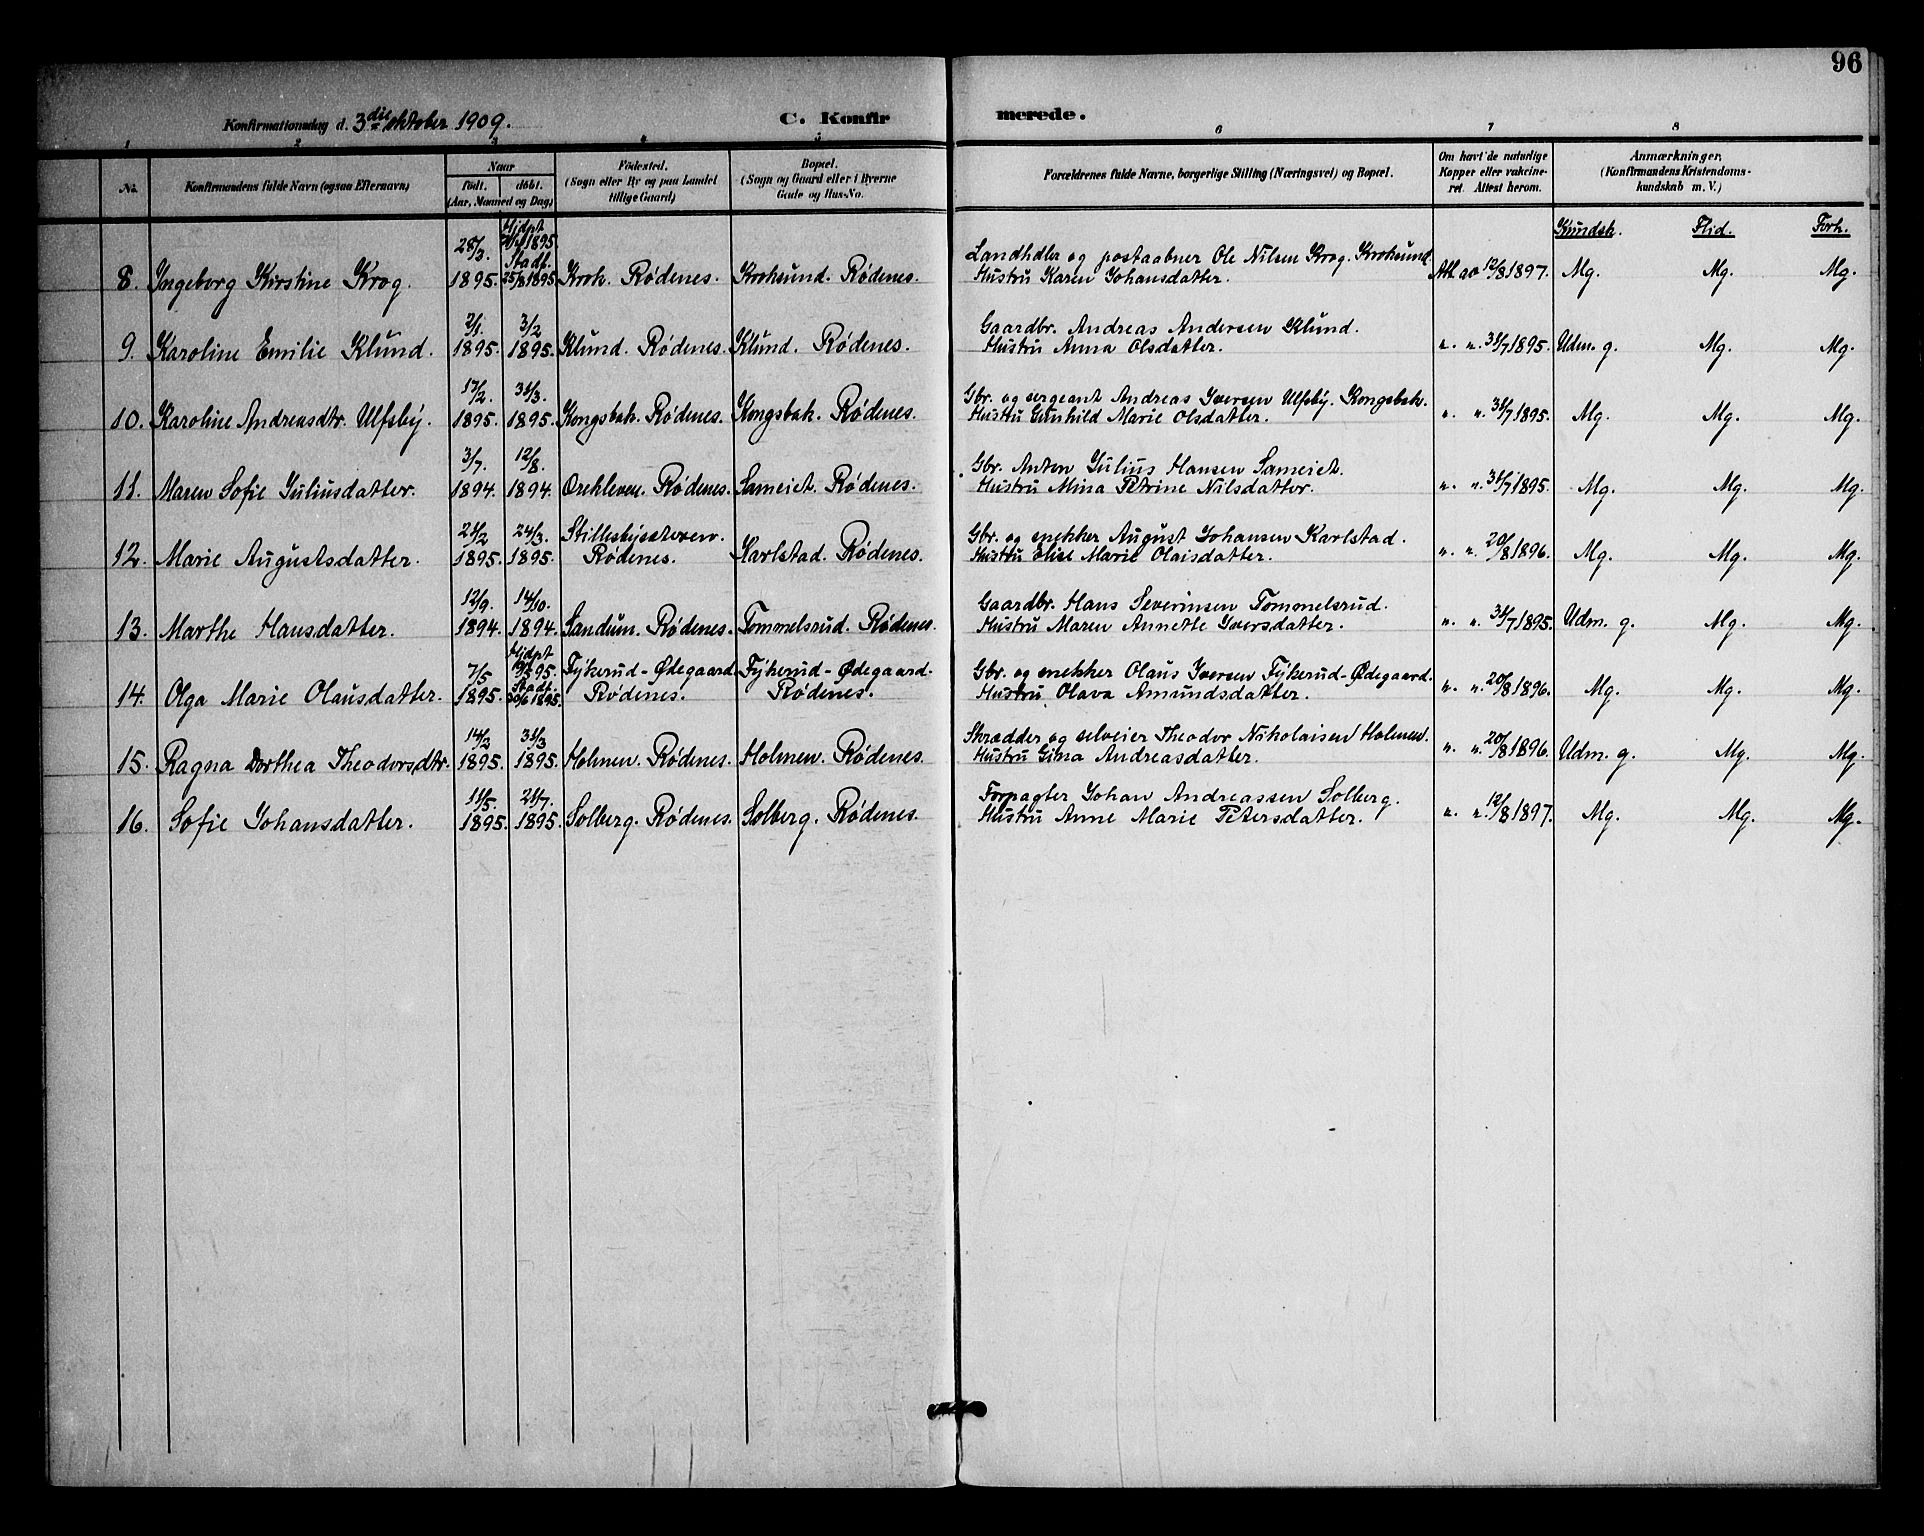 96
Konfirmationsdag d. 3die oktober 1909.
C. Konfir
merede.
1 2 3 4 5 6 7 8
No.
Konfirmandens fulde Navn (ogsaa Efternavn)
Naar
født. døbt.
(Aar, Maaned og Dag)
Fødested.
(Sogn eller By og paa Landet
tillige Gaard)
Bopæl.
(Sogn og Gaard eller i Byerne
Gade og Hus-No.
Forældrenes fulde Navne, borgerlige Stilling (Næringsvei) og Bopæl.
Om havt de naturlige
Kopper eller vakcine-
ret. Attest herom.
Anmærkninger,
(Konfirmandens Kristendoms-
kundskab m. V.)
Kundsk. Flid. Forh.
8. Ingeborg Kirstine Krog. 28/3. 1895. Hjdpt 1895. Stadf. 25/8 1895 Krok. Rødenes. Kroksund. Rødenes.
Landhdler og postaabner Ole Nilsen Krog. Kroksund
Hustru Karen Johansdatter. 12/8 1897. Mg. Mg. Mg.
9. Karoline Emilie Klund. 2/1. 1895. 3/2 1895. Klund. Rødenes. Klund. Rødenes.
Gaardbr. Andreas Andersen Klund.
Hustru Anna Olsdatter. ". ". 31/7 1895. Udm. g. Mg. Mg.
10. Karoline Andreasdtr. Ulfsby. 17/2. 1895. 31/3. 1895. Kongsbak. Rødenes. Kongsbak. Rødenes.
Gbr. og sergeant Andreas Iversen Ulfsby. Kongsbak.
Hustru Gunhild Marie Olsdatter. ". ". 31/7 1895. Mg. Mg. Mg.
11. Maren Sofie Juliusdatter. 3/7. 1894. 12/8. 1894. Orekleven. Rødenes. Sameiet. Rødenes.
Gbr. Anton Julius Hansen Sameiet.
Hustru Mina Petrine Nilsdatter. ". ". 31/7 1895. Mg. Mg. Mg.
12. Marie Augustsdatter. 21/2 1895. 24/3. 1895. Stillesbysæteren. Rødenes. Karlstad. Rødenes.
Gbr. og snekker August Johansen Karlstad.
Hustru Elise Marie Olaisdatter. ". ". 20/8 1896. Mg. Mg. Mg.
13. Marthe Hansdatter. 12/9. 1894. 14/10. 1894. Sandum. Rødenes. Tommelsrud. Rødenes.
Gaardbr. Hans Severinsen Tommelsrud.
Hustru Maren Annette Iversdatter. ". ". 31/7 1895. Udm. g. Mg. Mg.
14. Olga Marie Olausdatter. 7/5 1895. Hjdpt 95. Stadf. 30/6 1895. Fykerud-Ødegaard Rødenes. Fykerud-Ødegaard. Rødenes.
Gbr. og snekker Olaus Iversen Fykerud-Ødegaard.
Hustru Olava Amundsdatter. ". ". 20/8 1896. Mg. Mg. Mg.
15. Ragna Dorthea Theodorsdtr. 14/2 1895. 31/3 1895. Holmen. Rødenes. Holmen. Rødenes.
Skrædder og selveier Theodor Nikolaisen Holmen.
Hustru Gina Andreasdatter. ". ". 20/8 1896. Udm. g. Mg. Mg.
16. Sofie Johansdatter. 11/5. 1895. 21/7. 1895. Solberg. Rødenes. Solberg. Rødenes.
Forpagter Johan Andreassen Solberg.
Hustru Anne Marie Petersdatter. ". ". 12/8 1897. Mg. Mg. Mg.